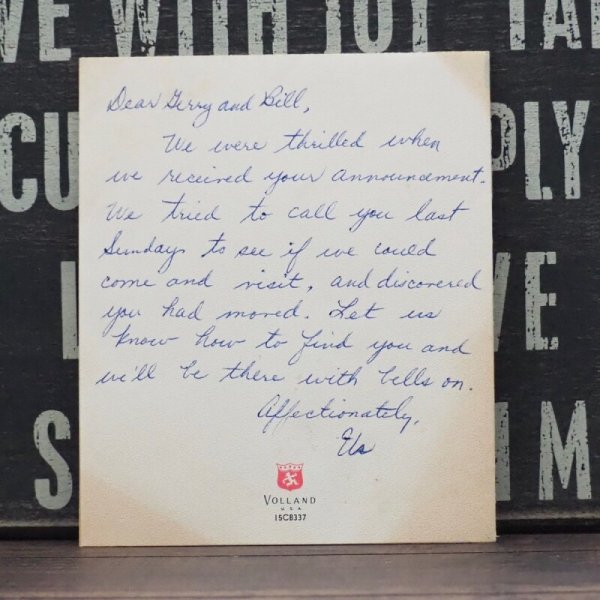 VE WITH JOY TA
CU
PLY
VE
S
IM
Dear Gerry and Bill,
We were thrilled when
we received your announcement.
We tried to call you last
Sunday to see if we could
come and visit, and discovered
you had moved. Let us
know how to find you and
we'll be there with bells on.
Affectionately,
VOLLAND
USA
15CB337